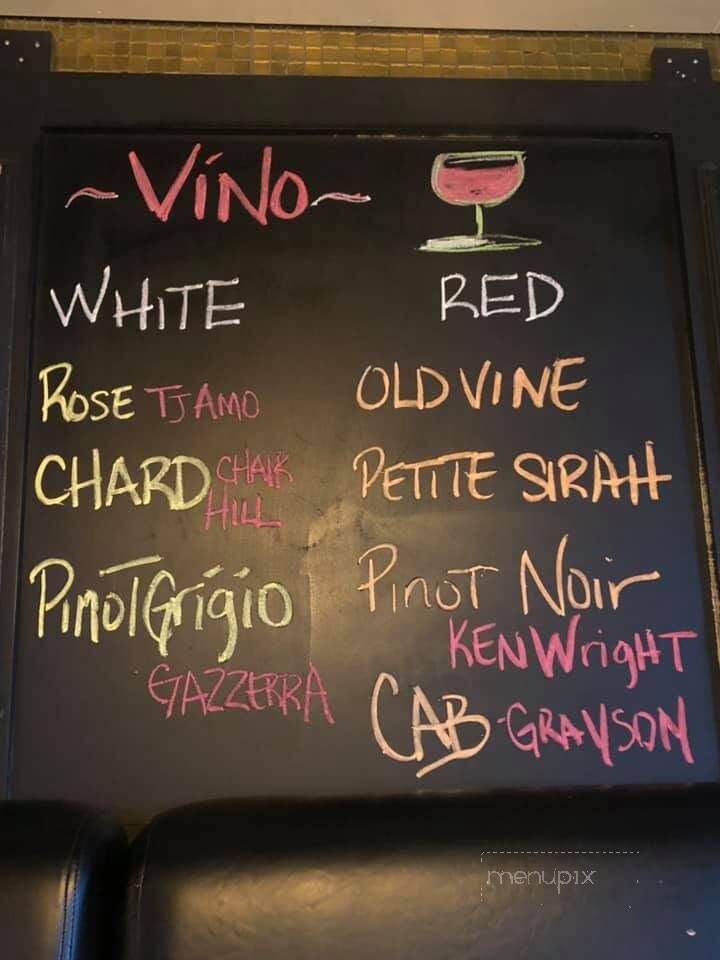 ~VíNO~
WHITE
ROSE TJAMO
CHARD CHALK
HILL
PINOT GRIGIO
GAZZERRA
RED
OLD VINE
PETITE SIRAH
PINOT NOIR
KEN WRIGHT
CAB-GRAYSON
menupix